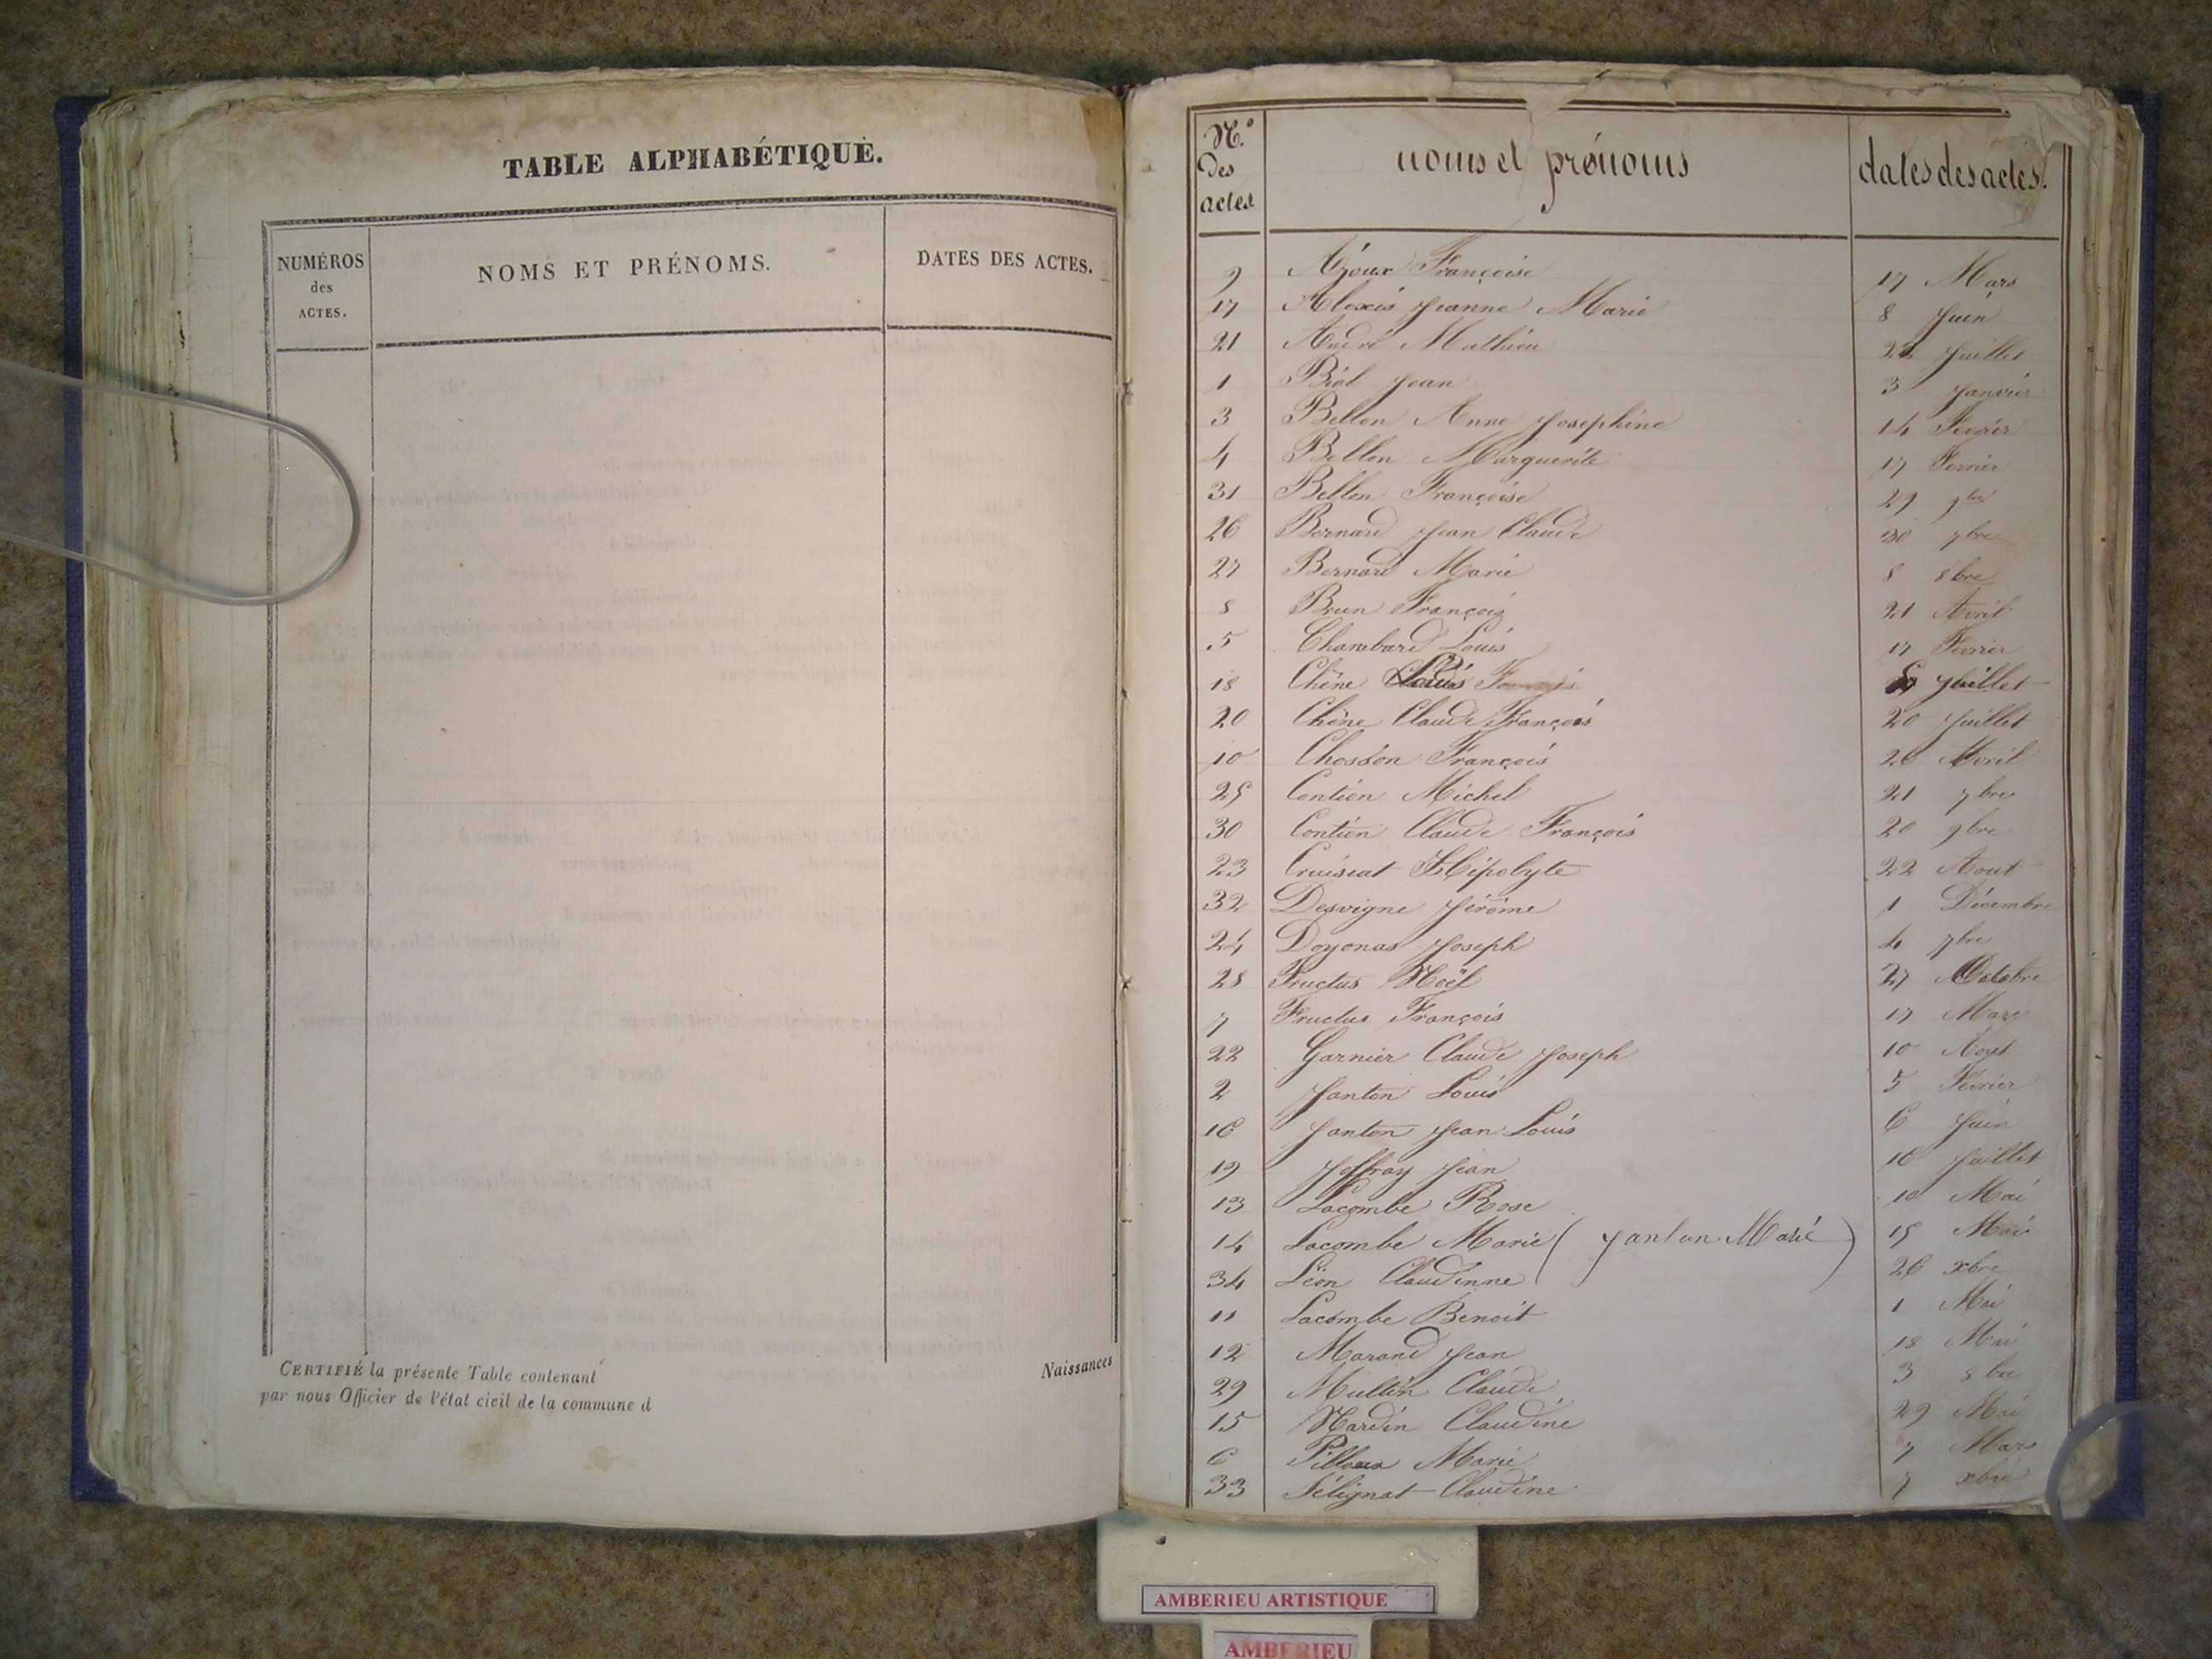 TABLE ALPHABÉTIQUE.
NUMÉROS
des
ACTES.
NOMS ET PRÉNOMS.
DATES DES ACTES.
CERTIFIÉ la présente Table contenant
Naissances
par nous Officier de l'état civil de la commune d
N.º
Des
actes
noms et prénoms
dates des actes.
9 Ajoux Françoise 17 Mars
17 Alexis Jeanne Marie 8 Juin
21 André Mathieu Juillet
1 Biol Jean 3 Janvier
3 Bellon Anne Josephine 14 Fevrier
4 Bellon Marguerite 17 Fevrier
31 Bellon Françoise 29 9bre
26 Bernard Jean Claude 30 7bre
27 Bernard Marie 8 8bre
8 Brun François 21 Avril
5 Chambard Louis 17 Fevrier
18 Chêne Louis Juillet
20 Chêne Claude François 20 Juillet
10 Chosson François 26 Avril
25 Contion Michel 21 7bre
30 Contion Claude François 20 9bre
23 Cruisiat Hipolyte 22 Aout
32 Desvigne Jérôme 1 Décembre
24 Doyonas Joseph 4 7bre
28 Fructus Noël 27 Octobre
7 Fructus François 17 Mars
22 Garnier Claude Joseph 10 Aout
2 Janton Louis 5 Fevrier
16 Janton Jean Louis 6 Juin
19 Joffray Jean 16 Juillet
13 Lacombe Rose 10 Mai
14 Lacombe Marie ( Janton Marie ) 15 Mai
34 Léon Claudinne 26 xbre
11 Lacombe Benoit 1 Mai
12 Marand Jean 18 Mai
29 Multin Claude 3 8bre
15 Nardin Claudine 29 Mai
6 Pilloux Marie 7 Mars
33 Sélignat Claudine 7 xbre
AMBERIEU ARTISTIQUE
AMBERIEU